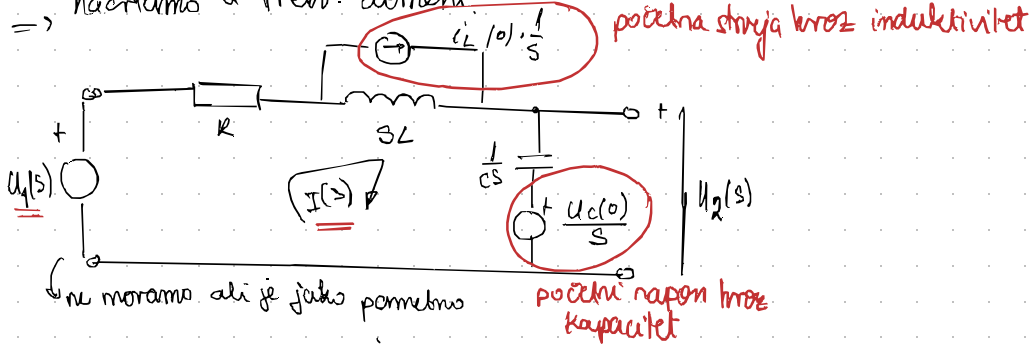 => nacrtamo u frekv. domeni
iL(0)·1/S
početna struja kroz induktivitet
R
SL
+
U1(S)
I(S)
1/CS
+ Uc(0)/S
+
U2(S)
ne moramo ali je jako pametno
početni napon kroz
kapacitet